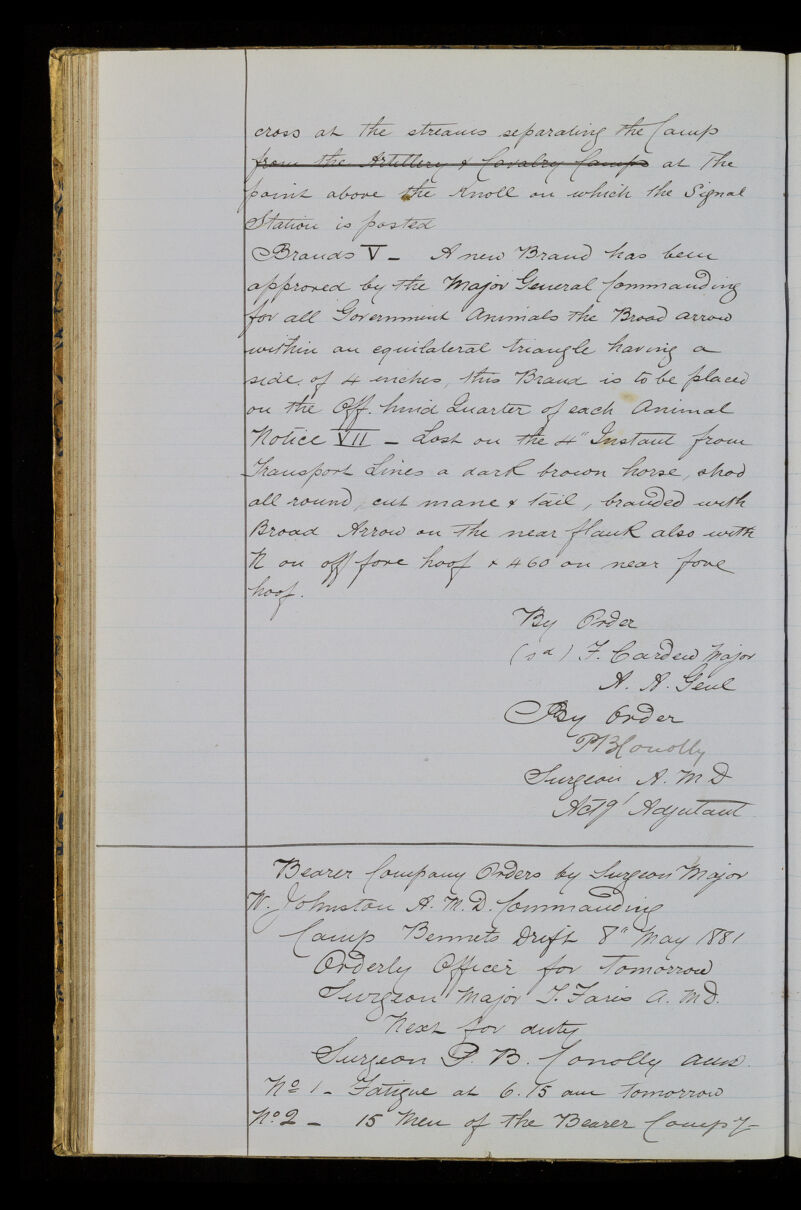 cross at the streams separating the Camp
from the Artillery & Cavalry Camps at the
point above the Knoll on which the Signal
Station is posted
Brands V - A new Brand has been
approved by the Major General Commanding
for all Government Animals the Broad arrow
within an equilateral triangle having a
side of 4 inches, this Brand is to be placed
on the Off. hind Quarter of each Animal
Notice VII - Lost on the 4" Instant from
Transport Lines a dark brown horse, shod
all round, cut mane & tail, branded with
Broad Arrow on the near flank also with
N on off fore hoof & 460 on near fore
hoof.
By Order
(sd) F. Cardew Major
A. A. Genl
By Order
PB Conolly
Surgeon A. M D
Actg Adjutant
Bearer Company Orders by Surgeon Major
W. Johnston A. M. D. Commanding
Camp Bennets Drift 8" May 1881
Orderly Officer for Tomorrow
Surgeon Major T. Faris A. M D.
Next for duty
Surgeon P. B. Conolly AMD.
No 1 - Fatigue at 6.15 am tomorrow
No 2 - 15 Men of the Bearer Compy